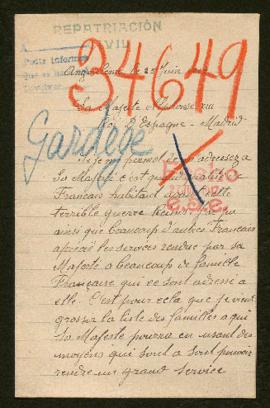 REPATRIACIÓN
CIVIL
34649
Angoulême le 25 Juin
Sa Majesté Alphonse XIII
Roi d'Espagne - Madrid
Gardège
Si je me permet de adressez a
Sa Majesté c'est qualité de
Français habitant avant cette
terrible guerre
ainsi que beaucoup d'autres Français
apprécié les services rendus par sa
Majesté a beaucoup de famille
Française qui ce sont adressé a
elle. C'est pour cela que je viens
grossir la liste des familles a qui
sa Majesté pourra en usant des
moyens qui sont a son pouvoir
rendre un grand service